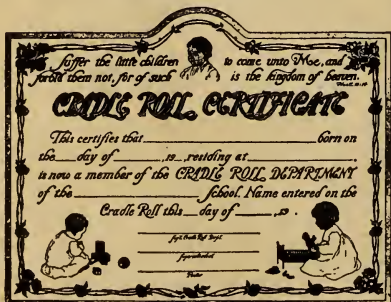 Suffer the little children to come unto Me, and
forbid them not, for of such is the kingdom of heaven.
CRADLE ROLL CERTIFICATE
This certifies that born on
the day of , 19 , residing at
is now a member of the CRADLE ROLL DEPARTMENT
of the School. Name entered on the
Cradle Roll this day of , 19 .
Supt. Cradle Roll Dept.
Superintendent
Pastor